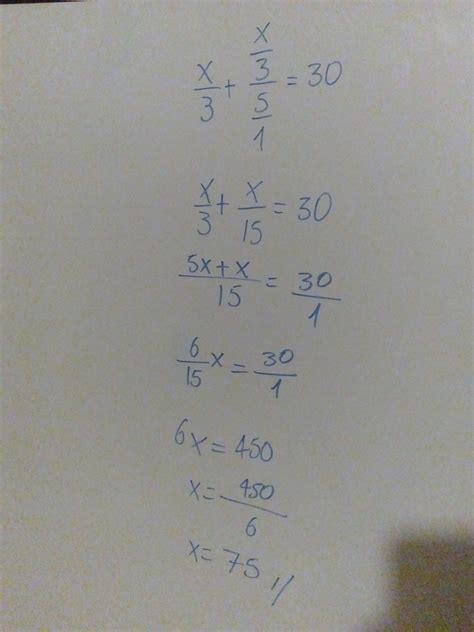 x/3 + (x/3)/(5/1) = 30
x/3 + x/15 = 30
(5x+x)/15 = 30/1
6/15 x = 30/1
6x = 450
x = 450/6
x = 75 //